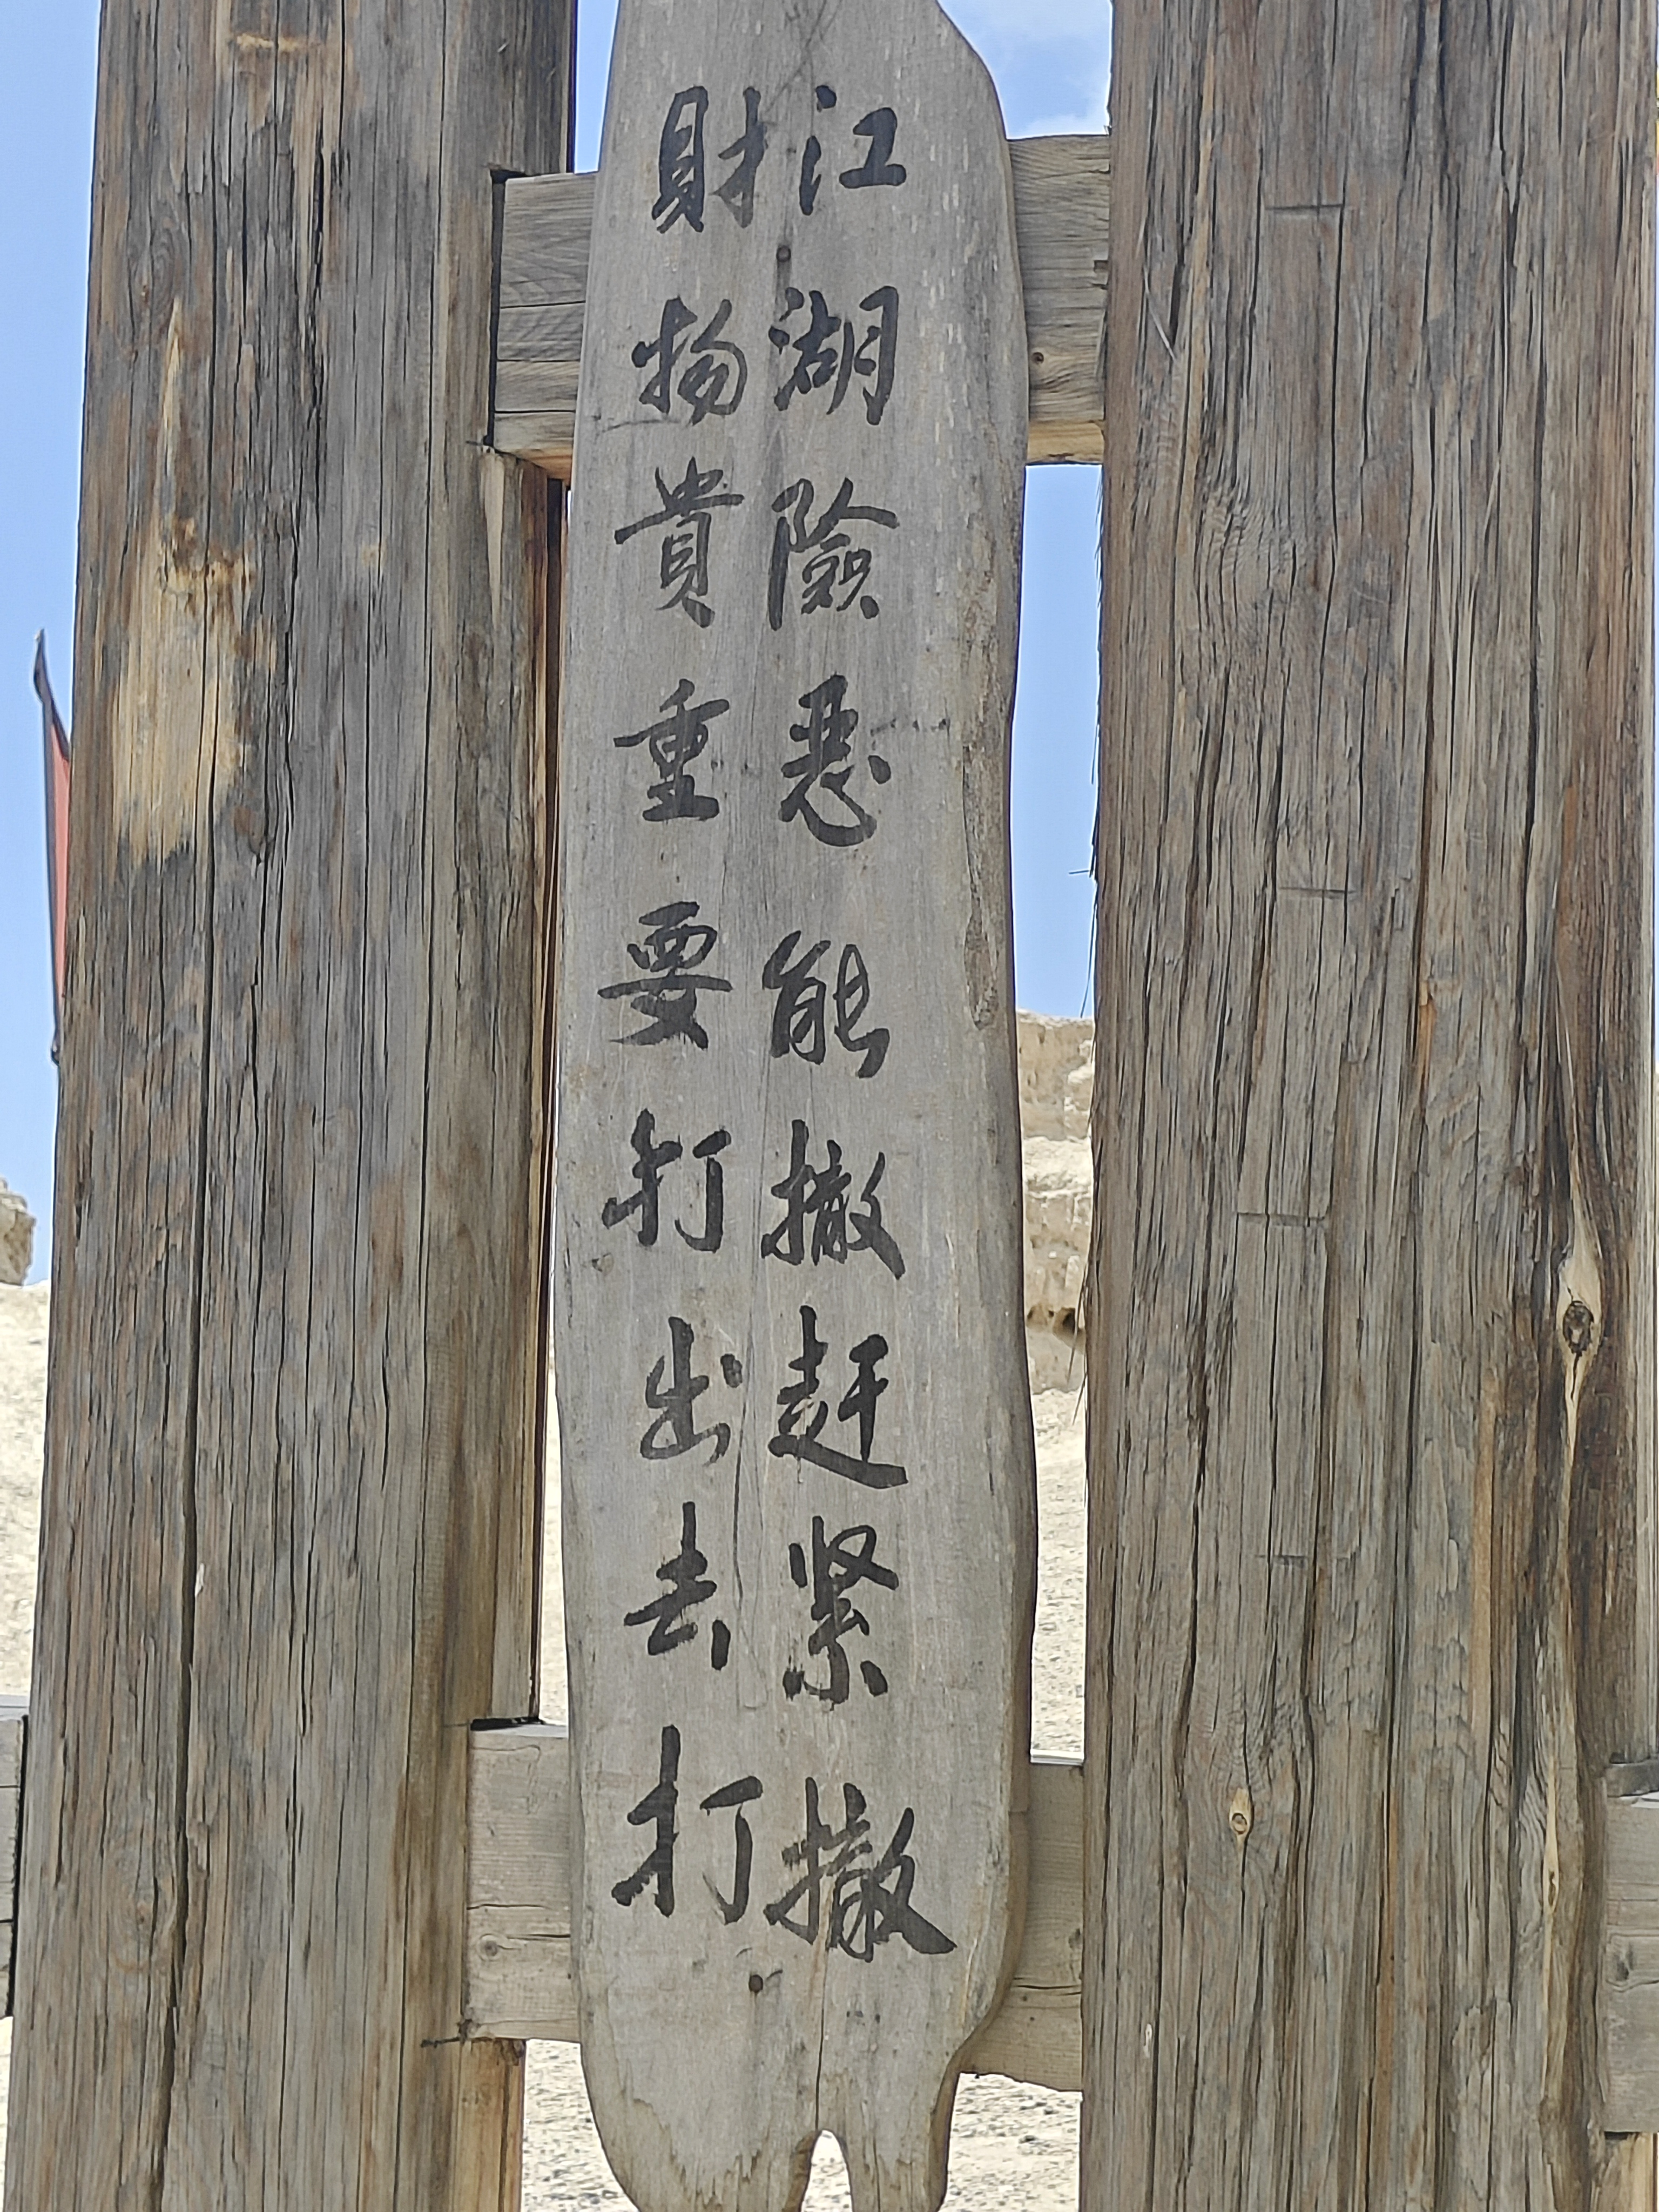 江湖險惡能撤赶紧撤
財物貴重要打出去打